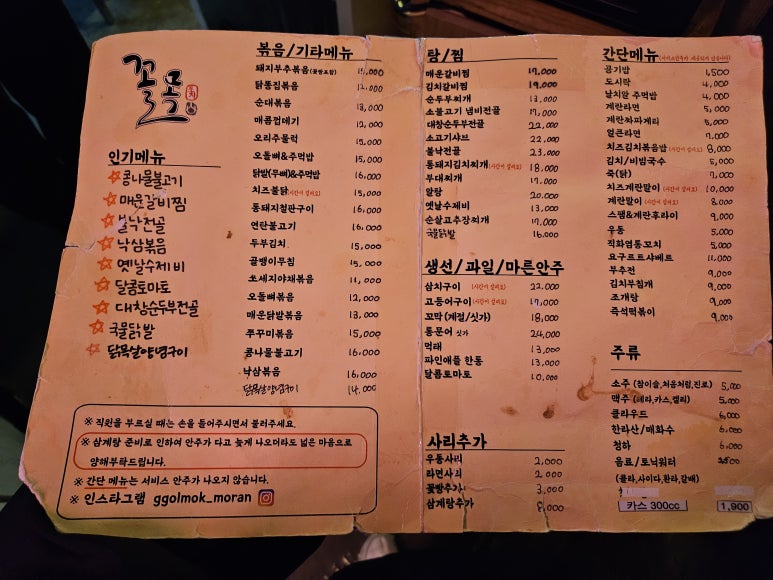 꼴목
인기메뉴
콩나물불고기
매운갈비찜
불낙전골
낙삼볶음
옛날수제비
달콤토마토
대창순두부전골
국물닭발
닭목살양념구이
볶음/기타메뉴
돼지부추볶음(꽃빵포함) 15,000
닭똥집볶음 12,000
순대볶음 13,000
매콤껍데기 12,000
오리주물럭 15,000
오돌뼈&주먹밥 15,000
닭발(무뼈)&주먹밥 16,000
치즈불닭(시간이 걸려요) 16,000
통돼지철판구이 16,000
언탄불고기 16,000
두부김치 15,000
골뱅이무침 15,000
쏘세지야채볶음 11,000
오돌뼈볶음 12,000
매운닭발볶음 13,000
쭈꾸미볶음 15,000
콩나물불고기 16,000
낙삼볶음 16,000
닭목살양념구이 14,000
※ 직원을 부르실 때는 손을 들어주시면서 불러주세요.
※ 삼계탕 준비로 인하여 안주가 다고 늦게 나오더라도 넓은 마음으로
양해부탁드립니다.
※ 간단 메뉴는 서비스 안주가 나오지 않습니다.
※ 인스타그램 ggolmok_moran
탕/찜
매운갈비찜 19,000
김치갈비찜 19,000
순두부찌개 13,000
소불고기 냄비전골 17,000
대창순두부전골 22,000
소고기샤브 22,000
불낙전골 23,000
통돼지김치찌개(시간이 걸려요) 18,000
부대찌개 17,000
알탕 20,000
옛날수제비 13,000
순살고추장찌개 17,000
국물닭발 16,000
생선/과일/마른안주
삼치구이 (시간이 걸려요) 22,000
고등어구이(시간이 걸려요) 19,000
꼬막(계절/싯가) 18,000
통문어 싯가 24,000
먹태 13,000
파인애플 한통 13,000
달콤토마토 10,000
사리추가
우동사리 2,000
라면사리 2,000
꽃빵추가 3,000
삼계탕추가 8,000
간단메뉴
공기밥 1,500
도시락 4,000
날치알 주먹밥 4,000
계란라면 5,000
계란짜파게티 5,000
얼큰라면 7,000
치즈김치볶음밥(시간이 걸려요) 8,000
김치/비빔국수 5,000
죽(닭) 7,000
치즈계란말이(시간이 걸려요) 10,000
계란말이(시간이 걸려요) 8,000
스팸&계란후라이 9,000
우동 5,000
직화염통꼬치 5,000
요구르트샤베트 11,000
부추전 9,000
김치부침개 9,000
조개탕 9,000
즉석떡볶이 9,000
주류
소주 (참이슬,처음처럼,진로) 5,000
맥주 (테라,카스,켈리) 5,000
클라우드 6,000
한라산/매화수 6,000
청하 6,000
음료/토닉워터
(콜라,사이다,환타,갈배)
카스 300cc 1,900